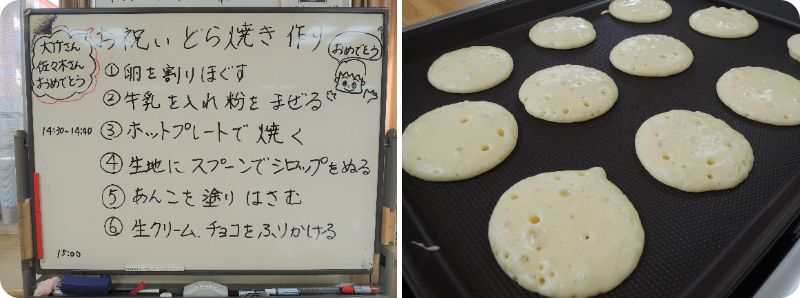 お祝い どら焼き 作り
大竹さん
佐々木さん
おめでとう
おめでとう
① 卵を割りほぐす
② 牛乳を入れ粉をまぜる
14:30~14:40
③ ホットプレートで焼く
④ 生地にスプーンでシロップをぬる
⑤ あんこを塗りはさむ
⑥ 生クリーム、チョコをふりかける
15:00